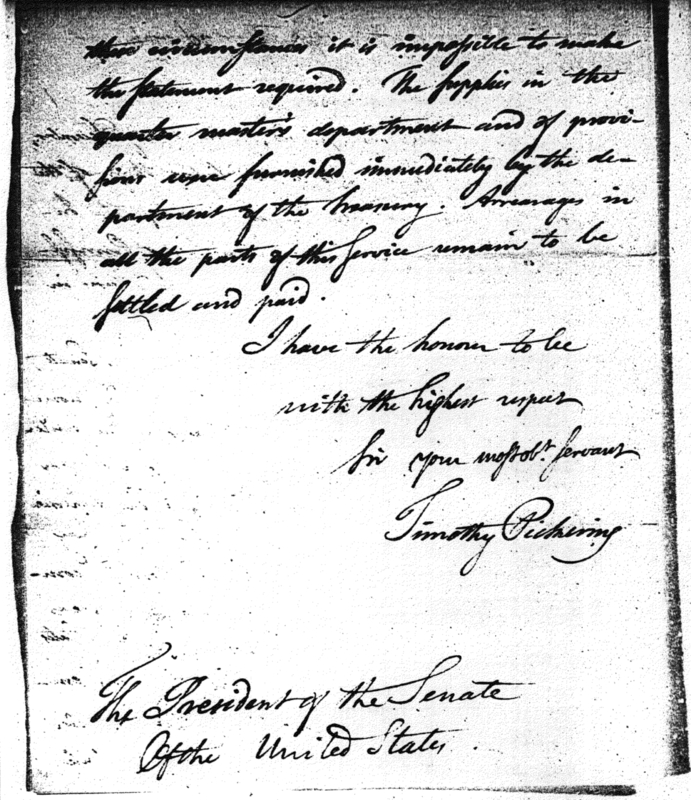 these circumstances it is impossible to make
the statement required. The supplies in the
quarter master's department and of provi-
sions were furnished immediately by the de-
partment of the treasury. Arrearages in
all the parts of this service remain to be
settled and paid.
I have the honour to be
with the highest respect
Sir your most obt. servant
Timothy Pickering
The President of the Senate
Of the United States.